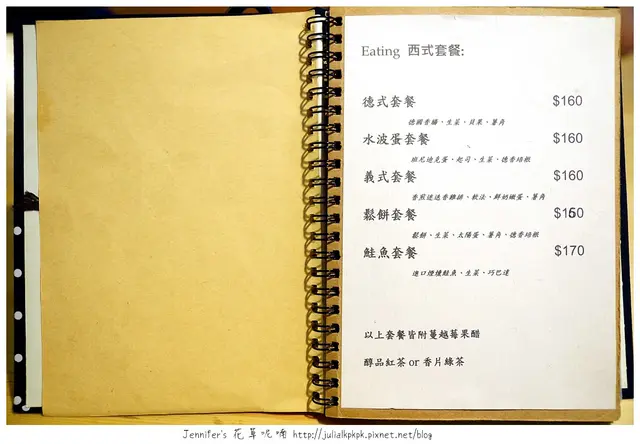 Eating 西式套餐:
德式套餐 $160
德國香腸、生菜、貝果、薯角
水波蛋套餐 $160
班尼迪克蛋、起司、生菜、德香培根
義式套餐 $160
香煎迷迭香雞排、軟法、鮮奶嫩蛋、薯角
鬆餅套餐 $150
鬆餅、生菜、太陽蛋、薯角、德香培根
鮭魚套餐 $170
進口煙燻鮭魚、生菜、巧巴達
以上套餐皆附蔓越莓果醋
醇品紅茶 or 香片綠茶
Jennifer's 花草呢喃 http://julialkpkpk.pixnet.net/blog